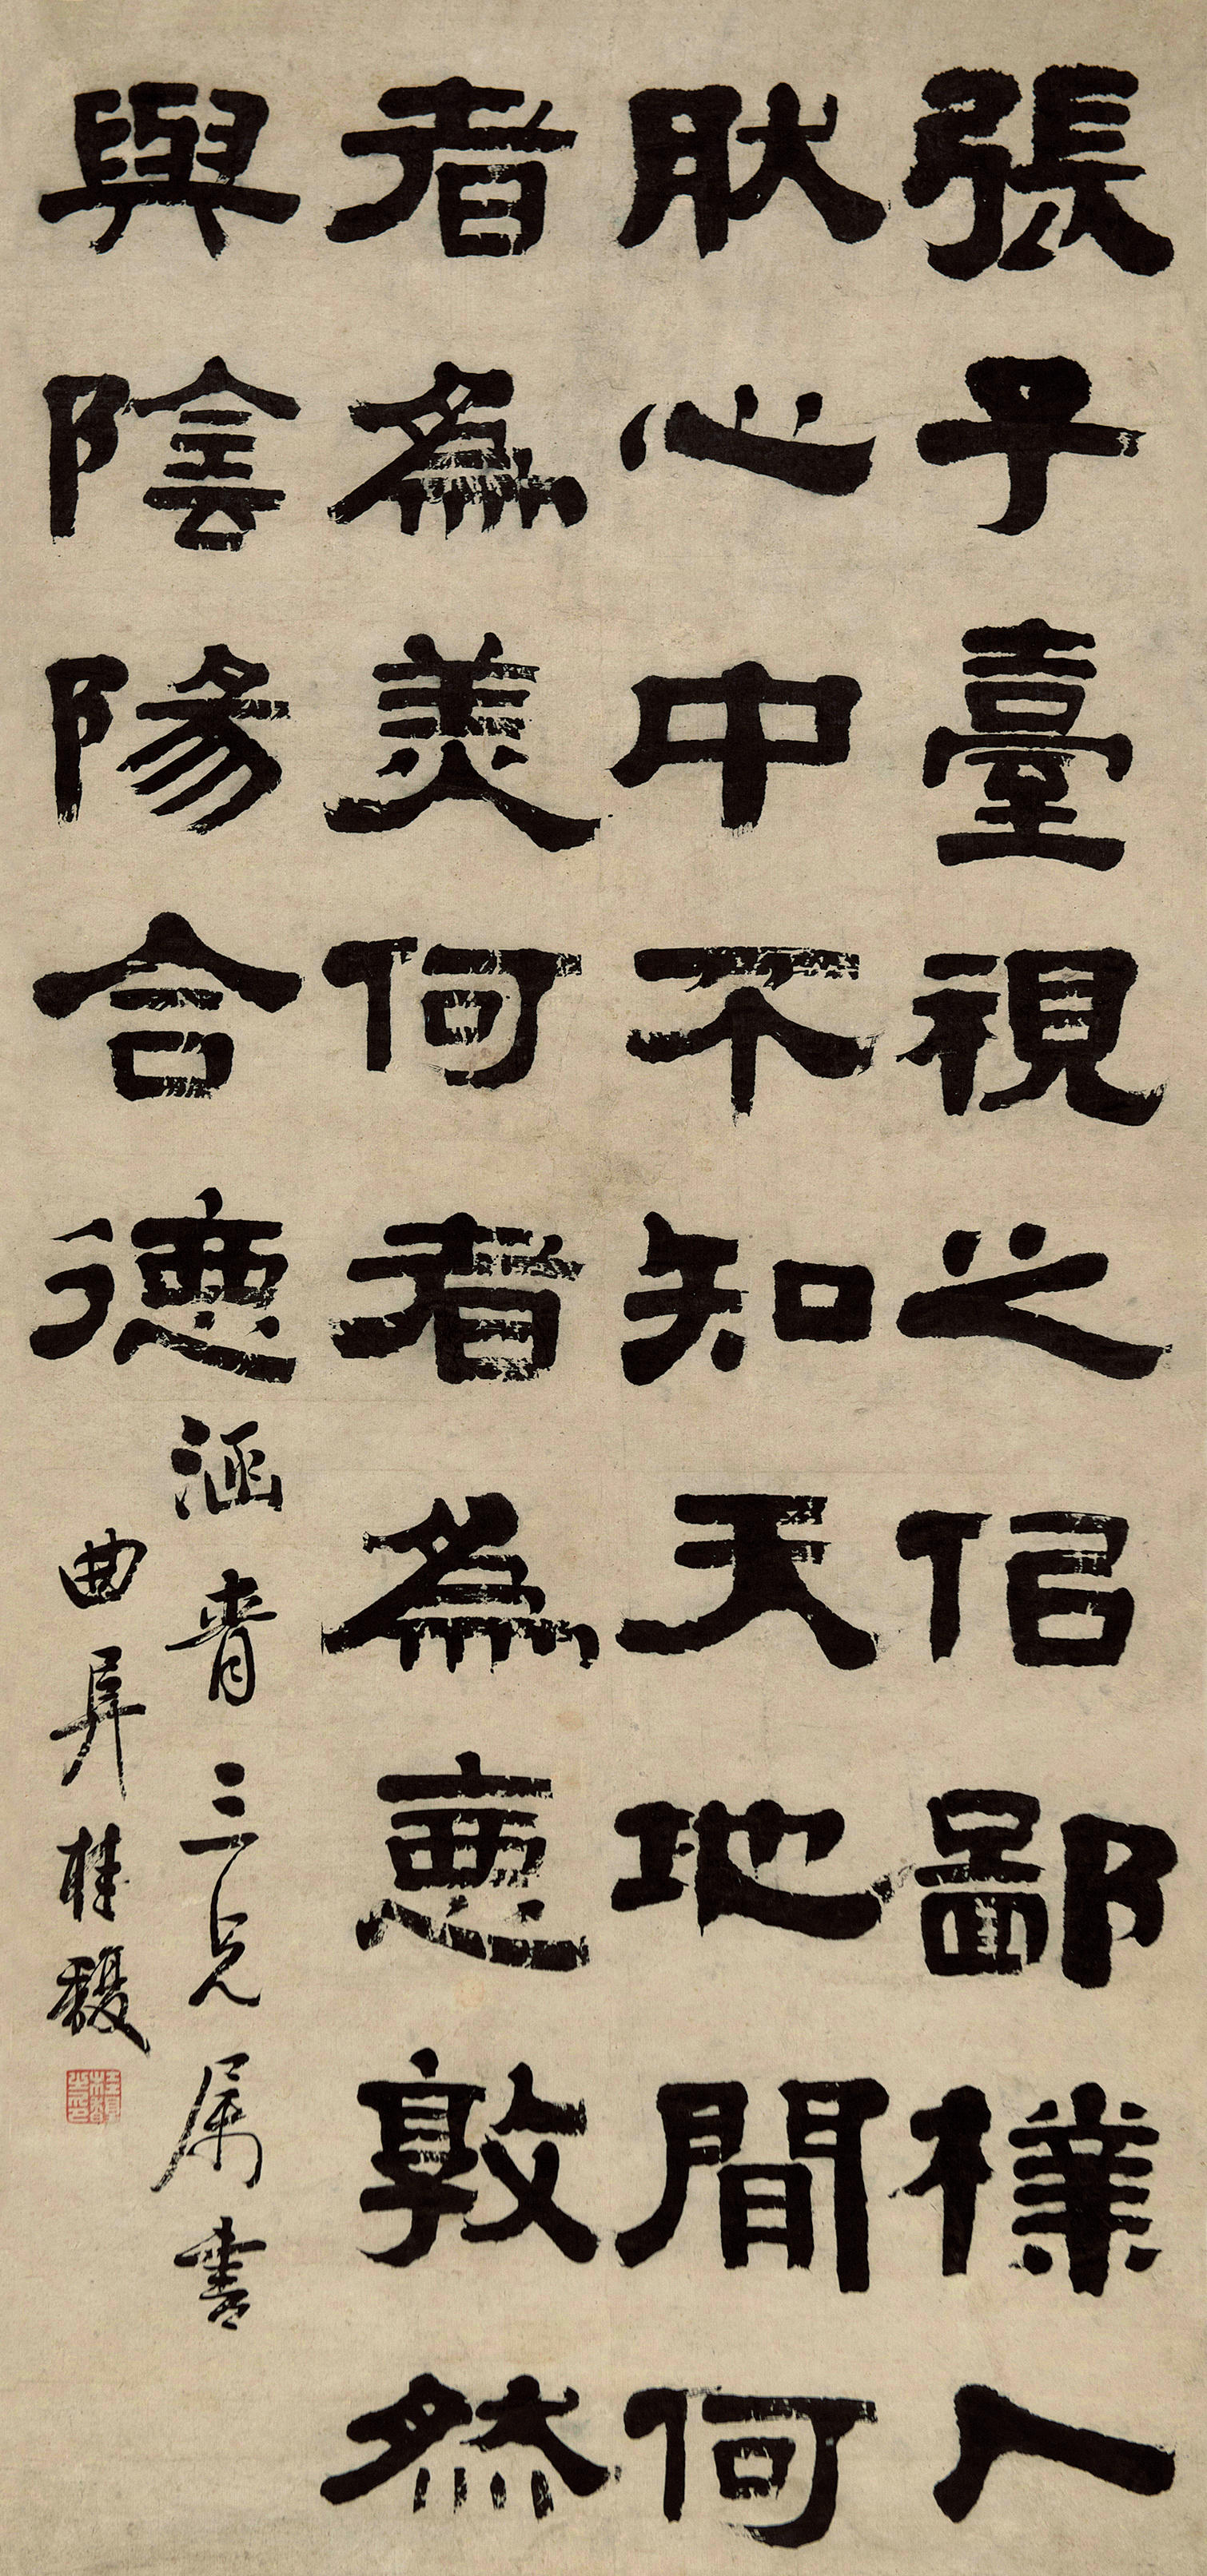 張子臺視之信鄙樸人
肰心中不知天地間何
者為美何者為惡敦然
與陰陽合德
涵齋三兄属書
曲阜桂馥